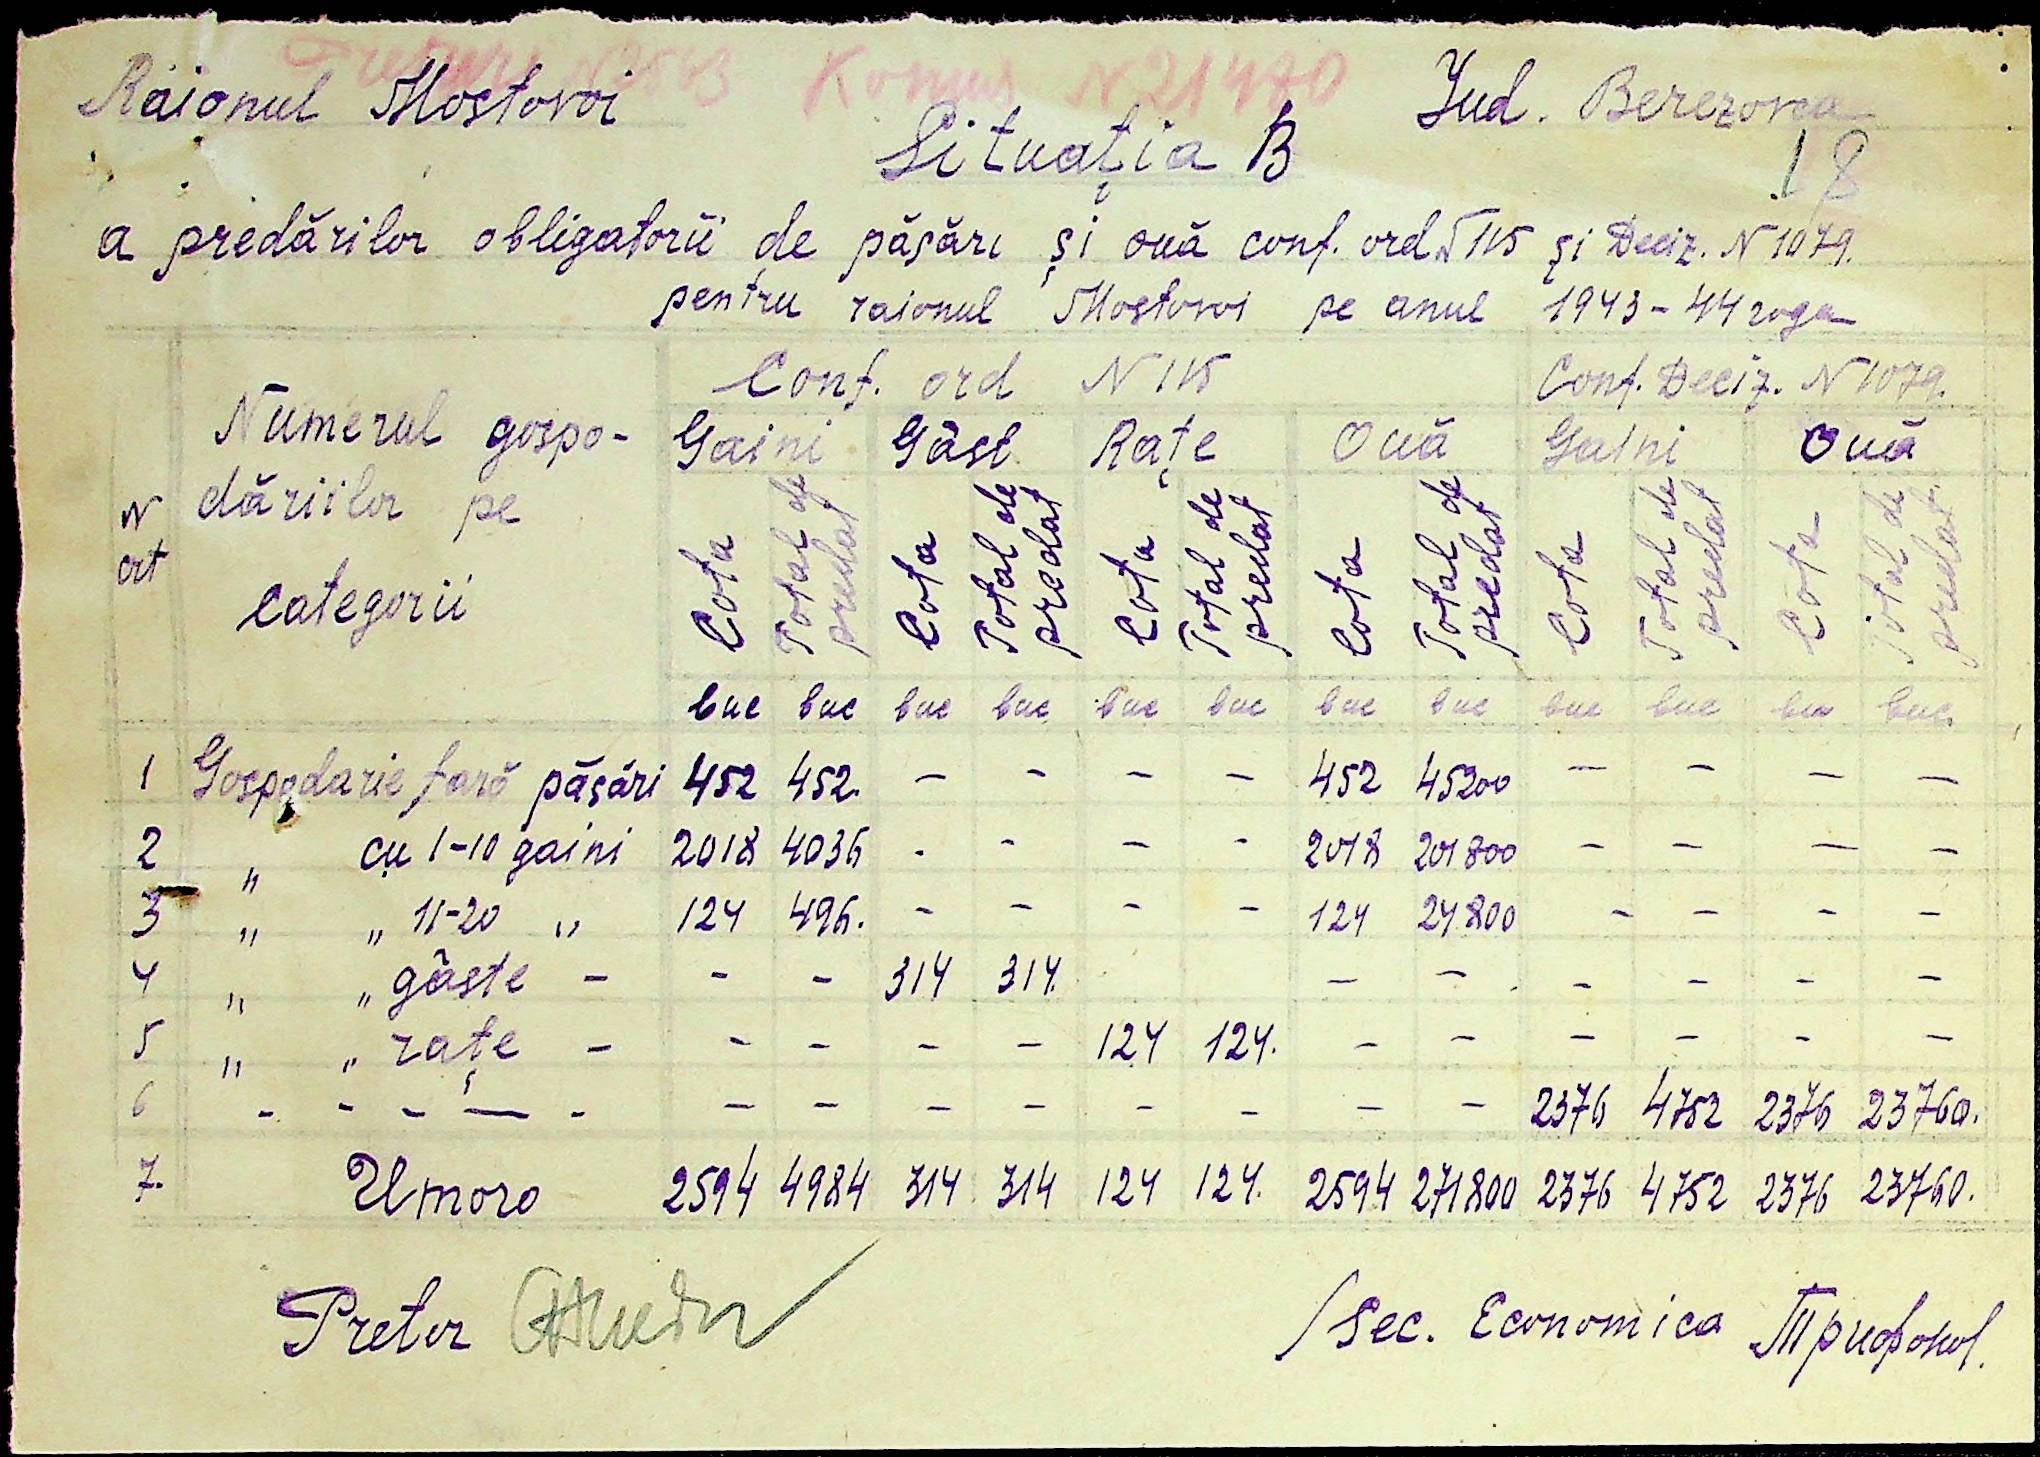 Raionul Mostovoi Jud. Berezovca
N 21470
Situația B
18
a predărilor obligatorii de păsări și ouă conf. ord. N 115 și Deciz. N 1079.
pentru raionul Mostovoi pe anul 1943-44 года
N crt Numerul gospo- Conf. ord N 115 Conf. Deciz. N 1079.
dăriilor pe Gaini Gâst Rațe Ouă Gaini Ouă
categorii Cota Total de predat Cota Total de predat Cota Total de predat Cota Total de predat Cota Total de predat Cota Total de predat
buc buc buc buc buc buc buc buc buc buc buc buc
1 Gospodarie fară păsări 452 452. - - - - 452 45200 - - - -
2 „ cu 1-10 gaini 2018 4036 - - - - 2018 201800 - - - -
3 „ „ 11-20 „ 124 496. - - - - 124 24800 - - - -
4 „ „ gâște - - - 314 314. - - - - - -
5 „ „ rațe - - - - - 124 124. - - - - - -
6 - - - - - - - - - - - - - 2376 4752 2376 23760.
7. Итого 2594 4984 314 314 124 124. 2594 271800 2376 4752 2376 23760.
Pretor /Sec. Economica